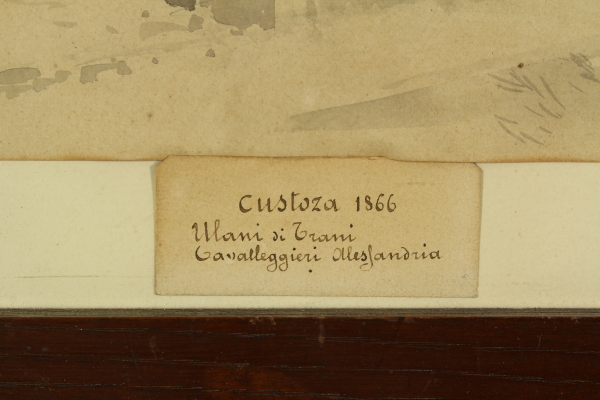 Custoza 1866
Ulani di Trani
Cavalleggieri Alessandria